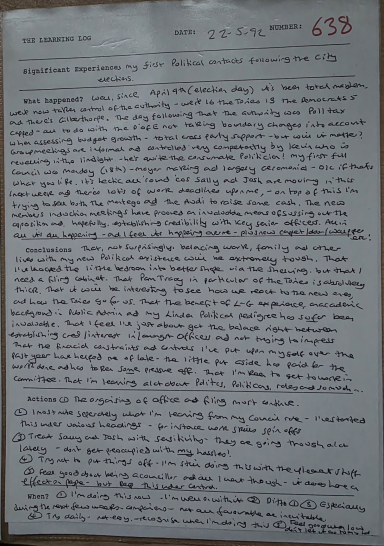 THE LEARNING LOG DATE: 22-5-92 NUMBER: 638
Significant Experiences my first Political contacts following the City
elections.
What happened? Well, since April 9th (election day) it's been total
well now taken control of the authority - we're 16 the Tories 13 the Democrats 5
and there's Gilberthorpe. The day following that the authority was Poll tax
capped - all to do with the DoE not taking boundary changes into account
when assessing budget growth - total cross party support - but will it matter?
Group meetings are informal and controlled very competently by Kevin who is
revelling in the limelight - he's quite the consumate Politician! my first full
Council was Monday (18th) - mayor making and largely ceremonial - OK if that's
what you like. It's hectic all round cos Sally and Josh are moving in this
next week and there's lots of work deadlines upon me, - on top of this I'm
trying to sell both the Montego and the Audi to raise some cash. The new
members induction meetings have proved an invaluable means of sussing out the
opposition and, hopefully, establishing credibility with key senior officers. All in
all it's all happening - and I feel it's happening over me - plus new carpet
Conclusions That, not surprisingly, balancing work, family and other
lives with my new Political existence will be extremely tough. That
I've knocked the little bedroom into better shape via the shelving, but that I
need a filing cabinet. That Pam Tracy in particular of the Tories is absolutely
thick. That it will be interesting to see how we react to the new era,
and how the Tories go for us. That the benefit of L-G experience, an academic
background in Public Admin and my Kinda Political pedigree has so far been
invaluable. That I feel I've just about got the balance right between
establishing cred/interest amongst officers and not trying to impress
That the financial constraints and controls I've put upon myself over the
past year have helped me of late - the little put aside has paid for the
work done and has taken some pressure off. That I'm keen to get to work in
committee. That I'm learning a lot about Politics, Politicians, roles and
Actions ① The organising of office and filing must continue.
② I must note seperately what I'm learning from my Council role - I've started
this under various headings - for instance work spills spin offs
③ Treat Sally and Josh with sensitivity - they are going through a lot
lately - don't get preoccupied with my hassles!
④ Try not to put things off - I'm still doing this with
⑤ Feel good about being a councillor and all I went through - it does have a
effect on people - but keep this under control.
When? ① I'm doing this now - I'm well on with it ② Ditto ③ Especially
during the next few weeks - comparisons - not all favourable are inevitable
④ Try daily - not easy,